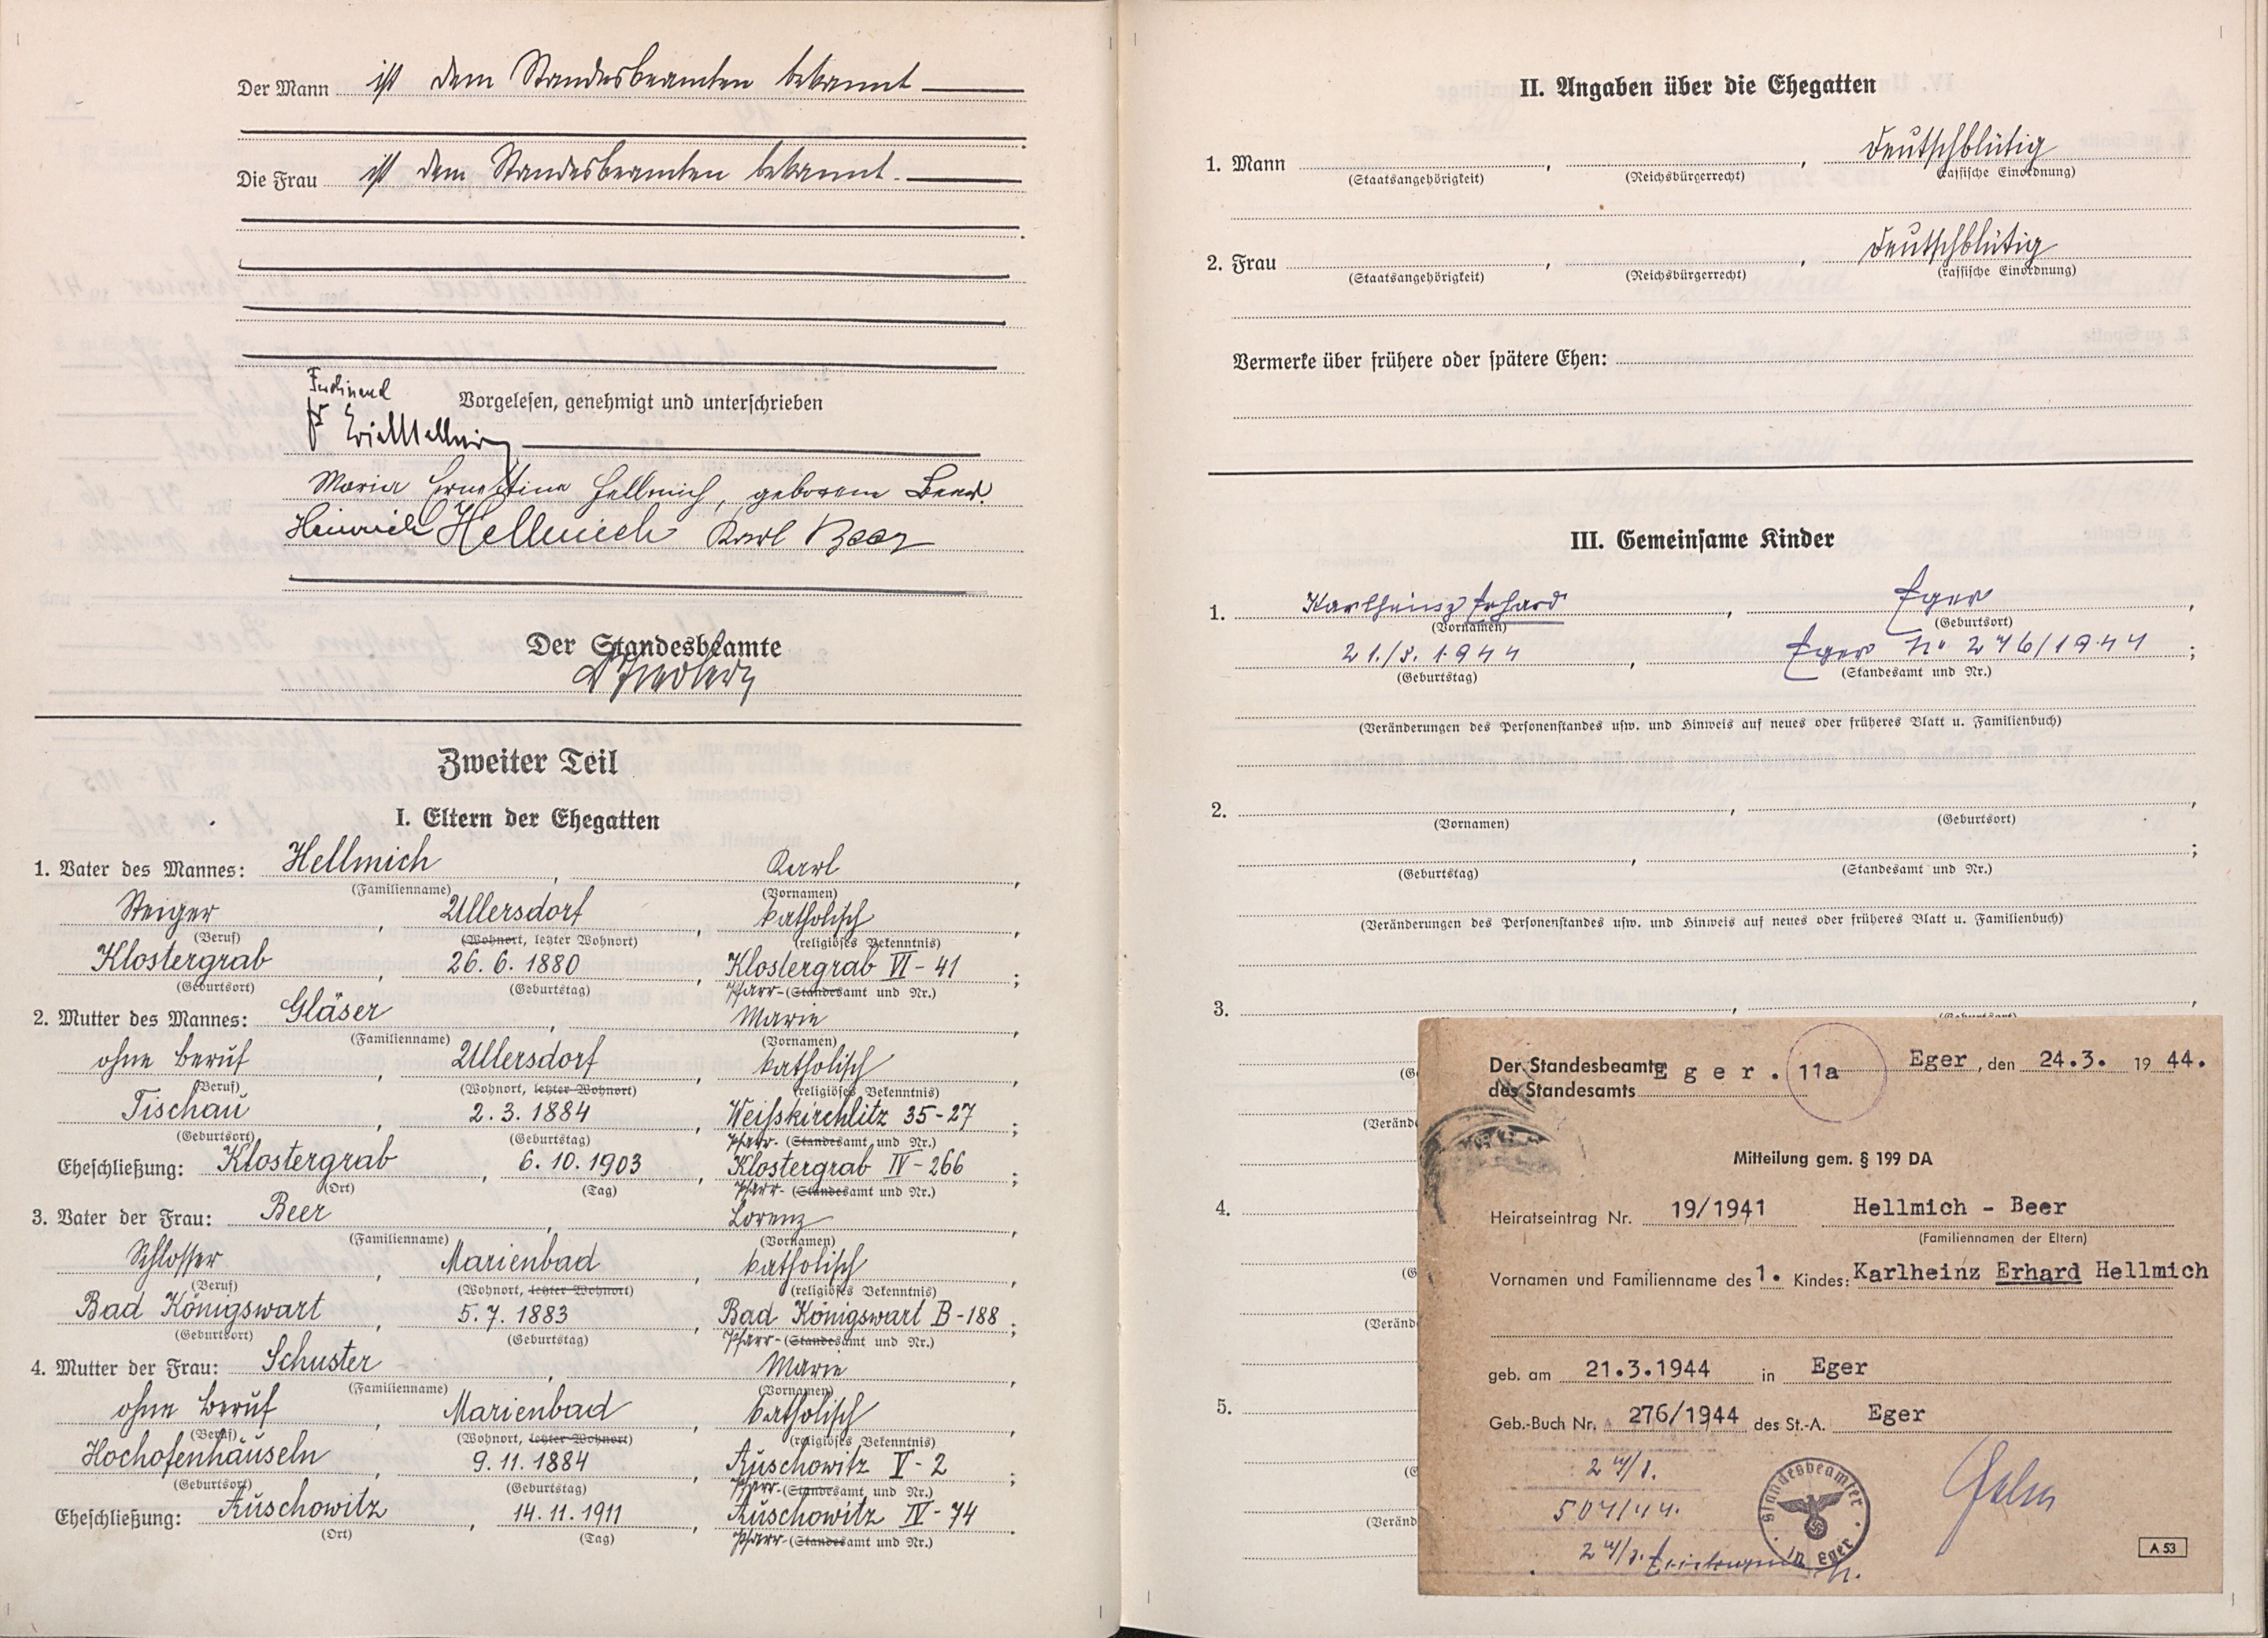 Der Mann ist dem Standesbeamten bekannt
Die Frau ist dem Standesbeamten bekannt.
Ferdinand
Vorgelesen, genehmigt und unterschrieben
Maria Ernestine Hellmich, geborene Beer.
Heinrich Hellmich Karl Beer
Der Standesbeamte
Zweiter Teil
I. Eltern der Ehegatten
1. Vater des Mannes: Hellmich, Karl,
(Familienname) (Vornamen)
Steiger, Ullersdorf, katholisch,
(Beruf) (Wohnort, letzter Wohnort) (religiöses Bekenntnis)
Klostergrab, 26.6.1880, Klostergrab VI-41;
(Geburtsort) (Geburtstag) Pfarr-(Standesamt und Nr.)
2. Mutter des Mannes: Gläser, Marie,
(Familienname) (Vornamen)
ohne Beruf, Ullersdorf, katholisch,
(Beruf) (Wohnort, letzter Wohnort) (religiöses Bekenntnis)
Tischau, 2.3.1884, Weißkirchlitz 35-27;
(Geburtsort) (Geburtstag) Pfarr-(Standesamt und Nr.)
Eheschließung: Klostergrab, 6.10.1903, Klostergrab IV-266;
(Ort) (Tag) Pfarr-(Standesamt und Nr.)
3. Vater der Frau: Beer, Lorenz,
(Familienname) (Vornamen)
Schlosser, Marienbad, katholisch,
(Beruf) (Wohnort, letzter Wohnort) (religiöses Bekenntnis)
Bad Königswart, 5.7.1883, Bad Königswart B-188;
(Geburtsort) (Geburtstag) Pfarr-(Standesamt und Nr.)
4. Mutter der Frau: Schuster, Marie,
(Familienname) (Vornamen)
ohne Beruf, Marienbad, katholisch,
(Beruf) (Wohnort, letzter Wohnort) (religiöses Bekenntnis)
Hochofenhäuseln, 9.11.1884, Auschowitz V-2;
(Geburtsort) (Geburtstag) Pfarr-(Standesamt und Nr.)
Eheschließung: Auschowitz, 14.11.1911, Auschowitz IV-74.
(Ort) (Tag) Pfarr-(Standesamt und Nr.)
II. Angaben über die Ehegatten
1. Mann, , deutschblütig
(Staatsangehörigkeit) (Reichsbürgerrecht) (rassische Einordnung)
2. Frau, , deutschblütig
(Staatsangehörigkeit) (Reichsbürgerrecht) (rassische Einordnung)
Vermerke über frühere oder spätere Ehen:
III. Gemeinsame Kinder
1. Karlheinz Erhard, Eger,
(Vornamen) (Geburtsort)
21./3.1944, Eger No 276/1944;
(Geburtstag) (Standesamt und Nr.)
(Veränderungen des Personenstandes usw. und Hinweis auf neues oder früheres Blatt u. Familienbuch)
2. , ,
(Vornamen) (Geburtsort)
, ;
(Geburtstag) (Standesamt und Nr.)
(Veränderungen des Personenstandes usw. und Hinweis auf neues oder früheres Blatt u. Familienbuch)
3. , ,
(Geburtsort)
(G
(Veränd
4.
(G
(Veränd
5.
(G
(Veränd
Der Standesbeamte Eger. 11a Eger, den 24.3. 1944.
des Standesamts
Mitteilung gem. § 199 DA
Heiratseintrag Nr. 19/1941 Hellmich - Beer
(Familiennamen der Eltern)
Vornamen und Familienname des 1. Kindes: Karlheinz Erhard Hellmich
geb. am 21.3.1944 in Eger
Geb.-Buch Nr. 276/1944 des St.-A. Eger
504/44.
Standesbeamter in Eger
A 53